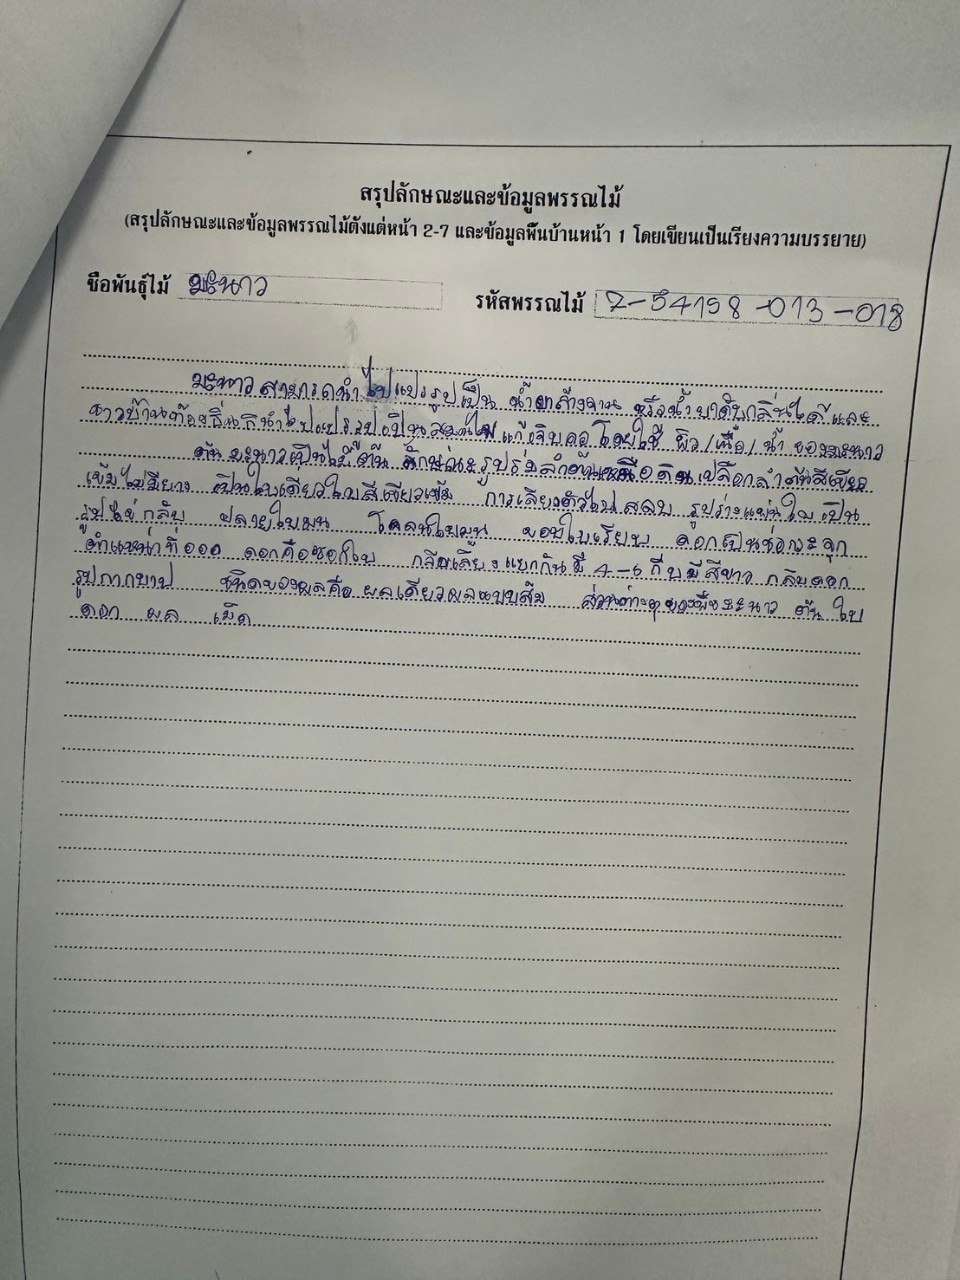 สรุปลักษณะและข้อมูลพรรณไม้
(สรุปลักษณะและข้อมูลพรรณไม้ตั้งแต่หน้า 2-7 และข้อมูลพื้นบ้านหน้า 1 โดยเขียนเป็นเรียงความบรรยาย)
ชื่อพันธุ์ไม้ มะนาว รหัสพรรณไม้ 7-54198-013-018
มะนาวสามารถนำไปแปรรูปเป็น น้ำยาล้างจาน หรือน้ำยาดับกลิ่นได้และ
ชาวบ้านท้องถิ่นนำไปแปรรูปเป็นสมุนไพรแก้เจ็บคอ โดยใช้ ผิว/เนื้อ/น้ำ ของมะนาว
ต้นมะนาวเป็นไม้ต้น ลักษณะรูปร่างลำต้นเหนือดิน เปลือกลำต้นสีเขียว
เข้มไม่มียาง เป็นใบเดียวใบสีเขียวเข้ม การเลียงตัวใบสลับ รูปร่างแผ่นใบเป็น
รูปไข่กลับ ปลายใบมน โคลนใบมน ขอบใบเรียบ ดอกเป็นช่อกระจุก
ตำแหน่งที่ออก ดอกคือซอกใบ กลีบเลี้ยงแยกกันมี 4-6 กีบมีสีขาว กลีบดอก
รูปกากบาท ชนิดของผลคือ ผลเดียวผลแบบส้ม ส่วนต่างๆของพืชมะนาว ต้น ใบ
ดอก ผล เมิด